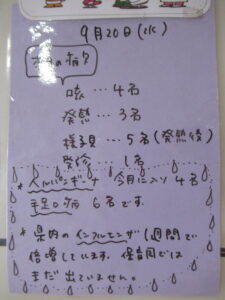 9月20日(水)
本日の病?
咳…4名
発熱…3名
様子見…5名(発熱後)
受診…1名
*ヘルパンギーナ 今月に入り4名
手足口病 6名です。
*県内のインフルエンザ1週間で
倍増しています。保育園では
まだ出ていません。